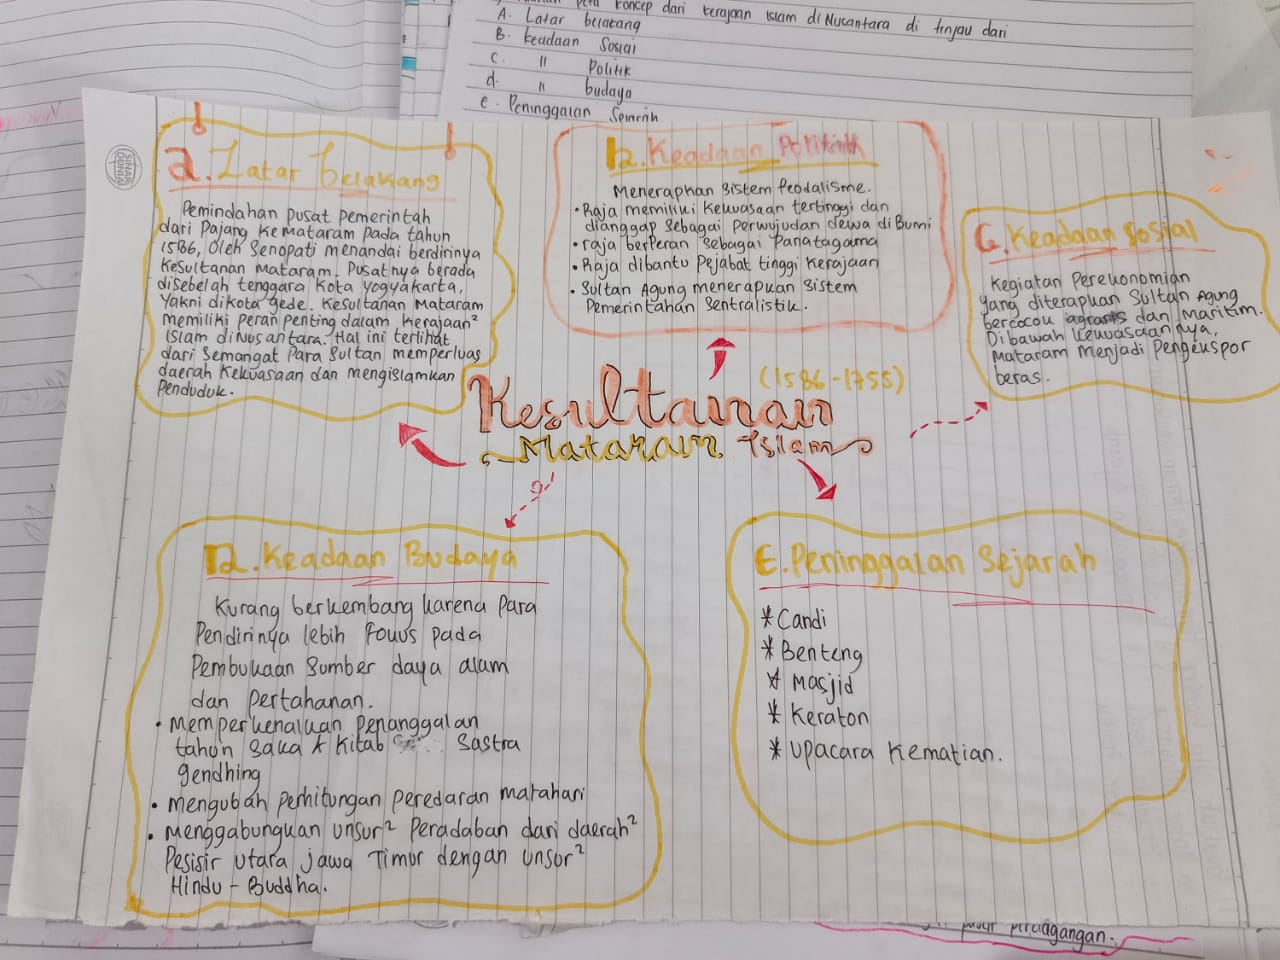 peta konsep dari kerajaan islam di Nusantara di tinjau dari
A. Latar belakang
B. keadaan Sosial
c. " Politik
d. " budaya
e. Peninggalan Sejarah
SINAR DUNIA
a. Latar belakang
Pemindahan pusat pemerintah
dari Pajang ke mataram pada tahun
1586, Oleh Senopati menandai berdirinya
kesultanan mataram. Pusatnya berada
disebelah tenggara kota yogyakarta,
Yakni dikota gede. kesultanan Mataram
memiliki peran penting dalam kerajaan²
Islam di Nusantara. Hal ini terlihat
dari Semangat Para Sultan memperluas
daerah Kekuasaan dan mengislamkan
Penduduk.
b. Keadaan Politik
Menerapkan Sistem feodalisme.
• Raja memiliki Kekuasaan tertinggi dan
dianggap Sebagai perwujudan dewa di Bumi
• raja berperan Sebagai Panatagama
• Raja dibantu Pejabat tinggi Kerajaan
• Sultan Agung menerapkan Sistem
Pemerintahan Sentralistik.
C. Keadaan Sosial
Kegiatan Perekonomian
yang diterapkan Sultan Agung
bercocok agraris dan maritim.
Dibawah kekuasaannya,
Mataram Menjadi Pengekspor
beras.
(1586-1755)
Kesultanan
Mataram Islam
D. Keadaan Budaya
Kurang berkembang karena Para
Pendirinya lebih Fokus pada
Pembukaan Sumber daya alam
dan Pertahanan.
• memperkenalkan Penanggalan
tahun Saka & Kitab Sastra
gendhing
• mengubah perhitungan peredaran matahari
• menggabungkan unsur² Peradaban dari daerah²
Pesisir utara jawa Timur dengan unsur²
Hindu - Buddha.
E. Peninggalan Sejarah
* Candi
* Benteng
* Masjid
* Keraton
* Upacara Kematian.
perdagangan.